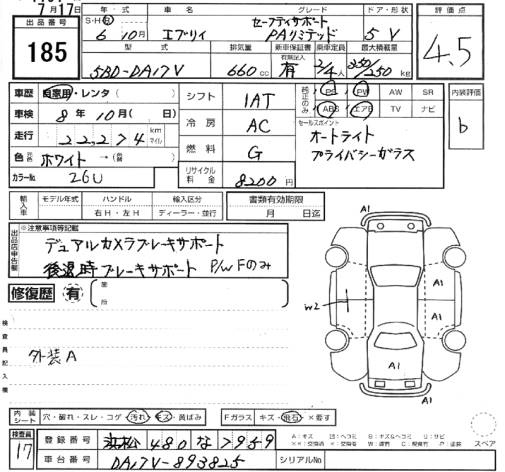 7月17
出品番号 年・式 車名 グレード ドア・形状 評価点
185
S・H・R 6年 10月 エブリイ セーフティサポート PAリミテッド 5 V
4.5
型式 排気量 新車保証書 乗車定員 最大積載量
5BD-DA17V 660cc 有無記入 有 2/4人 350/250kg
車歴 自家用・レンタ( ) シフト 1AT 純正のみ PS PW AW SR 内装評価
車検 8年 10月( ) 冷房 AC ABS エアB TV ナビ b
走行 22,274 km マイル セールスポイント
オートライト
プライバシーガラス
色 元色 ホワイト →( 色) 燃料 G
カラーNo. 26U リサイクル料金 8200円
輸入車 モデル年式 ハンドル 輸入区分 書類有効期限
年 右H・左H ディーラー・並行 月 日迄
出品店申告欄 ※注意事項等記載
デュアルカメラブレーキサポート
後退時ブレーキサポート P/W Fのみ
修復歴 有 箇所
検査員記入欄
外装A
A1
A1
W2
A1
A1
A1
内装シート 穴・破れ・スレ・コゲ・汚れ・キズ・黄ばみ Fガラス キズ・飛石・×要す
検査員 17
登録番号 浜松 480 な 7959
車台番号 DA17V-893825 シリアルNo.
スペア